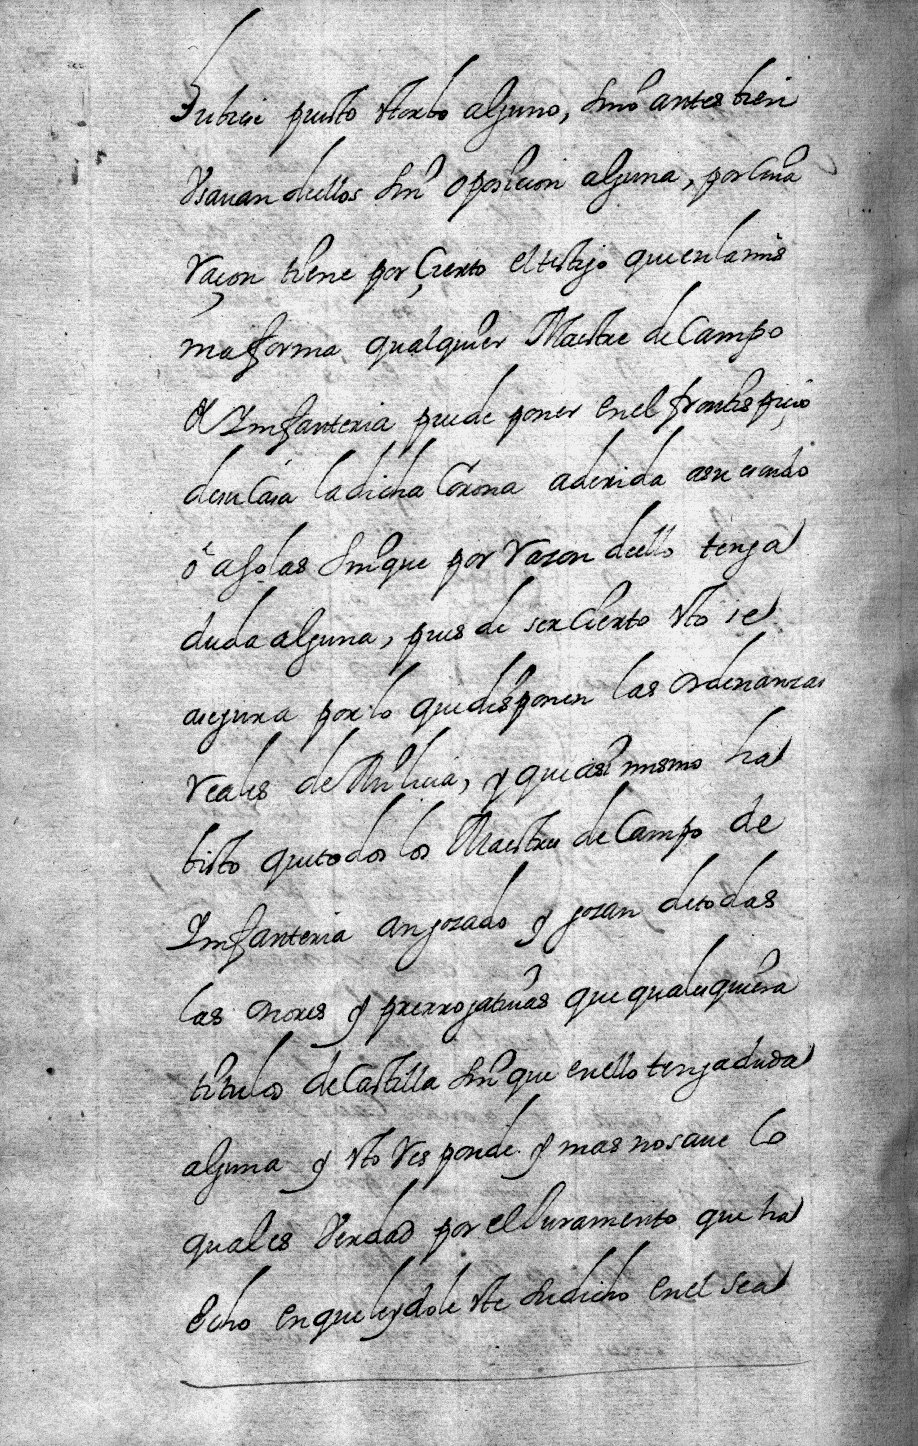 hubiese puesto estorbo alguno, sino antes bien
Usauan de ellos sin oposicion alguna, por cuia
raçon tiene por Çierto el testigo que en la mis
ma forma qualquier Maestre de Campo
de Infanteria puede poner en el frontispiçio
de su Casa la dicha Corona aderida a su escudo
ô a solas sin que por razon de ello tenga
duda alguna, pues de ser Cierto esto se
asegura por lo que disponen las Ordenanzas
reales de Milicia, y que asi mismo ha
bisto que todos los Maestres de Campo de
Infanteria an gozado y gozan de todas
las onores y prerrogatiuas que qualesquiera
titulos de Castilla sin que en ello tenga duda
alguna y esto responde y mas no saue lo
qual es Verdad por el Juramento que ha
Echo en que leydole este su dicho en el sea